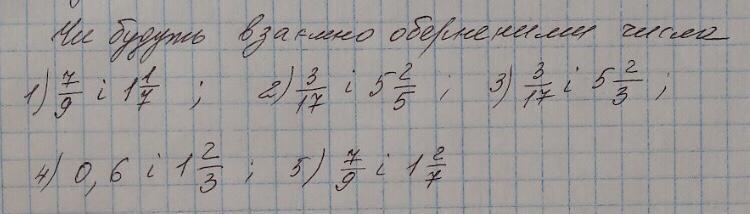 Чи будуть взаємно оберненими числа
1) 7/9 і 1 1/7 ; 2) 3/17 і 5 2/5 ; 3) 3/17 і 5 2/3 ;
4) 0,6 і 1 2/3 ; 5) 7/9 і 1 2/7